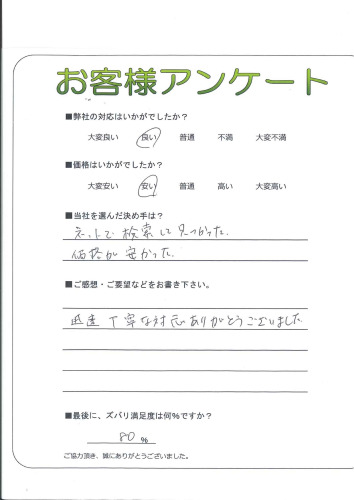 お客様アンケート
■弊社の対応はいかがでしたか？
大変良い 良い 普通 不満 大変不満
■価格はいかがでしたか？
大変安い 安い 普通 高い 大変高い
■当社を選んだ決め手は？
ネットで検索して見つかった.
価格が安かった.
■ご感想・ご要望などをお書き下さい。
迅速丁寧な対応ありがとうございました.
■最後に、ズバリ満足度は何％ですか？
80 %
ご協力頂き、誠にありがとうございました。